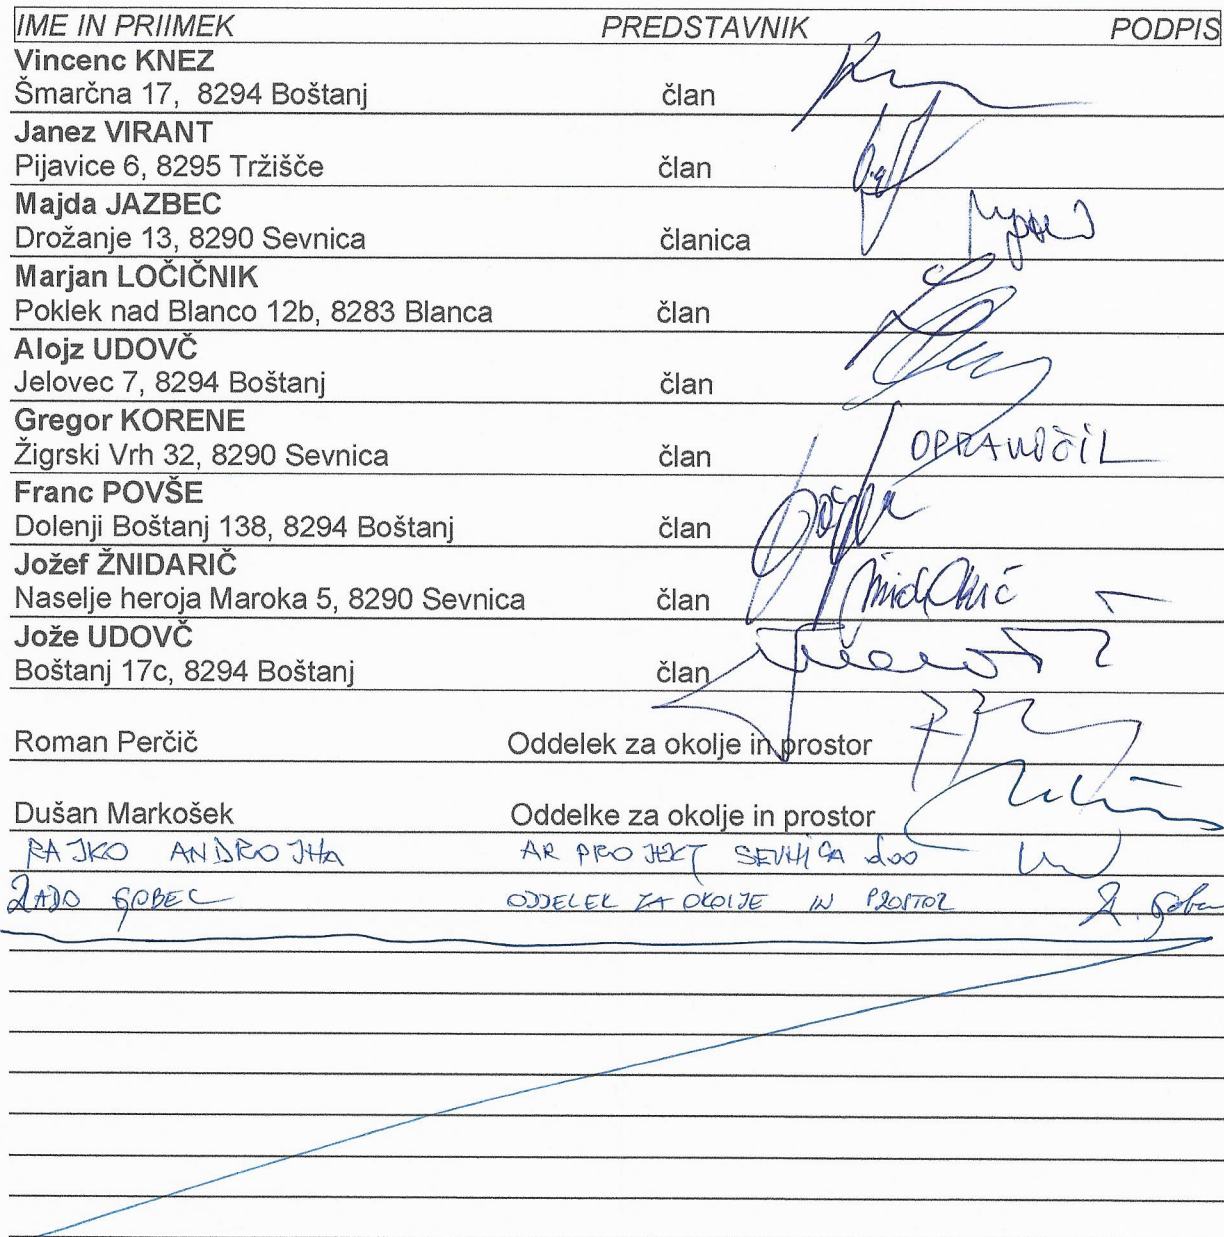 IME IN PRIIMEK PREDSTAVNIK PODPIS
Vincenc KNEZ
Šmarčna 17, 8294 Boštanj član
Janez VIRANT
Pijavice 6, 8295 Tržišče član
Majda JAZBEC
Drožanje 13, 8290 Sevnica članica
Marjan LOČIČNIK
Poklek nad Blanco 12b, 8283 Blanca član
Alojz UDOVČ
Jelovec 7, 8294 Boštanj član
Gregor KORENE
Žigrski Vrh 32, 8290 Sevnica član OPRAVIČIL
Franc POVŠE
Dolenji Boštanj 138, 8294 Boštanj član
Jožef ŽNIDARIČ
Naselje heroja Maroka 5, 8290 Sevnica član
Jože UDOVČ
Boštanj 17c, 8294 Boštanj član
Roman Perčič Oddelek za okolje in prostor
Dušan Markošek Oddelke za okolje in prostor
RAJKO ANDROJNA AR PROJEKT SEVNICA doo
RADO GOBEC ODDELEK ZA OKOLJE IN PROSTOR